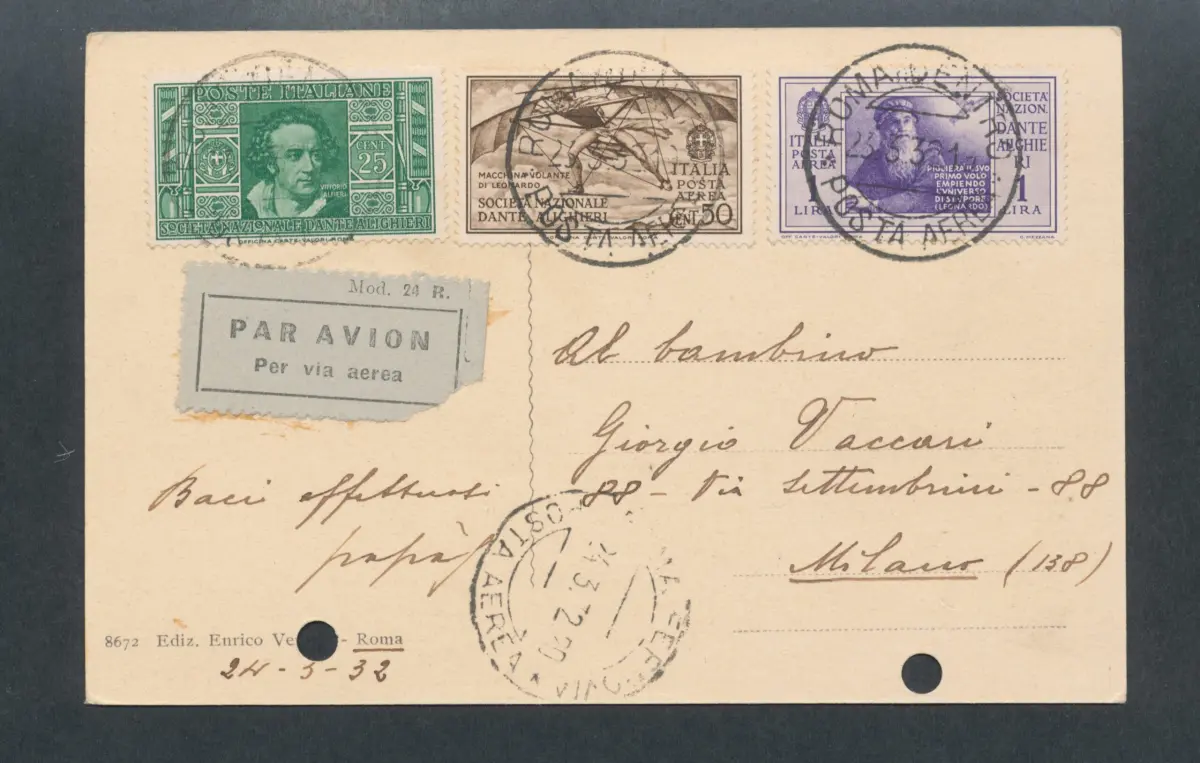 POSTE ITALIANE
CENT
25
VITTORIO
ALFIERI
SOCIETÀ NAZIONALE DANTE ALIGHIERI
MACCHINA VOLANTE
DI LEONARDO
SOCIETÀ NAZIONALE
DANTE ALIGHIERI
ITALIA
POSTA
AEREA
CENT 50
ITALIA
POSTA
AEREA
1
LIRA
SOCIETÀ
NAZION.
DANTE
ALIGHIE
RI
1
LIRA
PIGLIERÀ IL SVO
PRIMO VOLO
EMPIENDO
L'VNIVERSO
DI STVPORE
(LEONARDO)
ROMA
POSTA AEREA
ROMA
POSTA AEREA
Mod. 24 R.
PAR AVION
Per via aerea
Al bambino
Giorgio Vaccari
88 - Via Settembrini - 88
Milano (138)
Baci affettuosi
papà
POSTA AEREA
8672 Ediz. Enrico - Roma
24-5-32